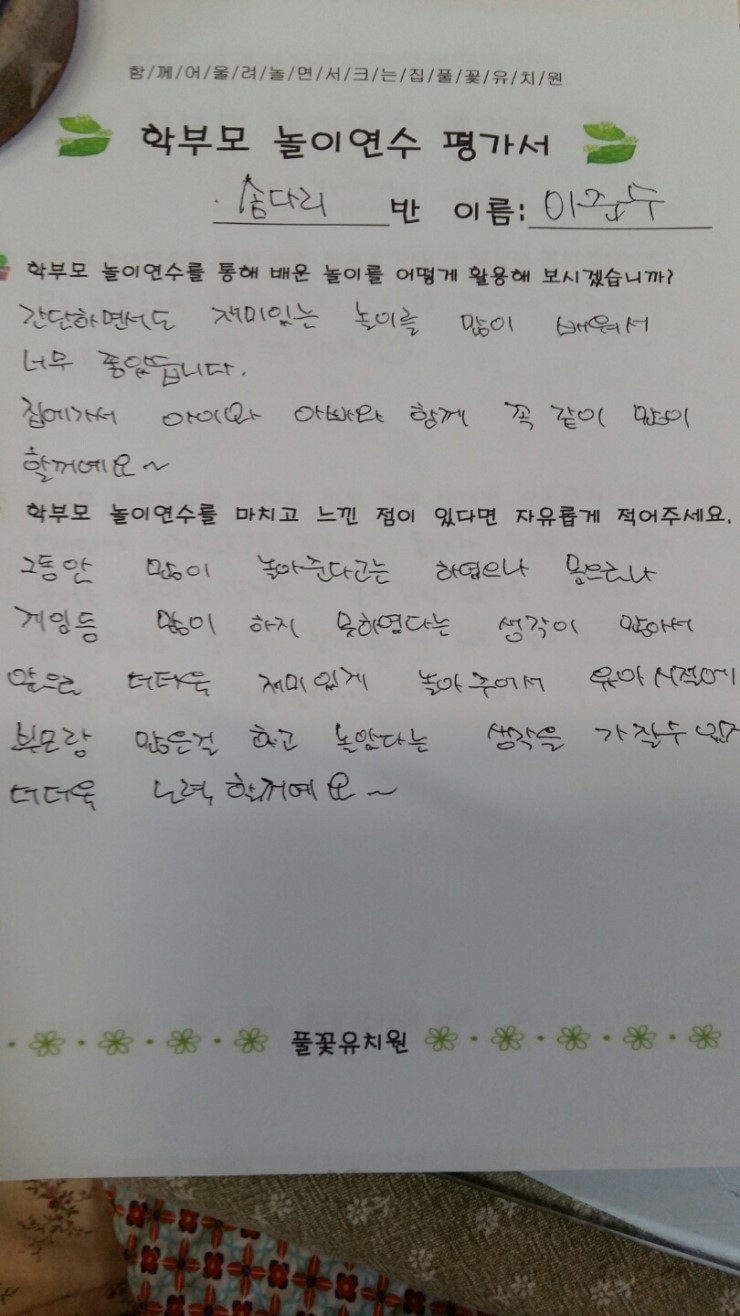 함/께/어/울/려/놀/면/서/크/는/집/풀/꽃/유/치/원
학부모 놀이연수 평가서
솜다리 반 이름: 이준수
학부모 놀이연수를 통해 배운 놀이를 어떻게 활용해 보시겠습니까?
간단하면서도 재미있는 놀이를 많이 배워서
너무 좋았습니다.
집에가서 아이와 아빠와 함께 꼭 같이 많이
할꺼예요~
학부모 놀이연수를 마치고 느낀 점이 있다면 자유롭게 적어주세요.
그동안 많이 놀아준다고는 하였으나 몸으로나
게임등 많이 하지 못하였다는 생각이 많아서
앞으로 더더욱 재미있게 놀아주어서 유아시절에
부모랑 많은걸 하고 놀았다는 생각을 가질수
더더욱 노력할꺼예요~
풀꽃유치원